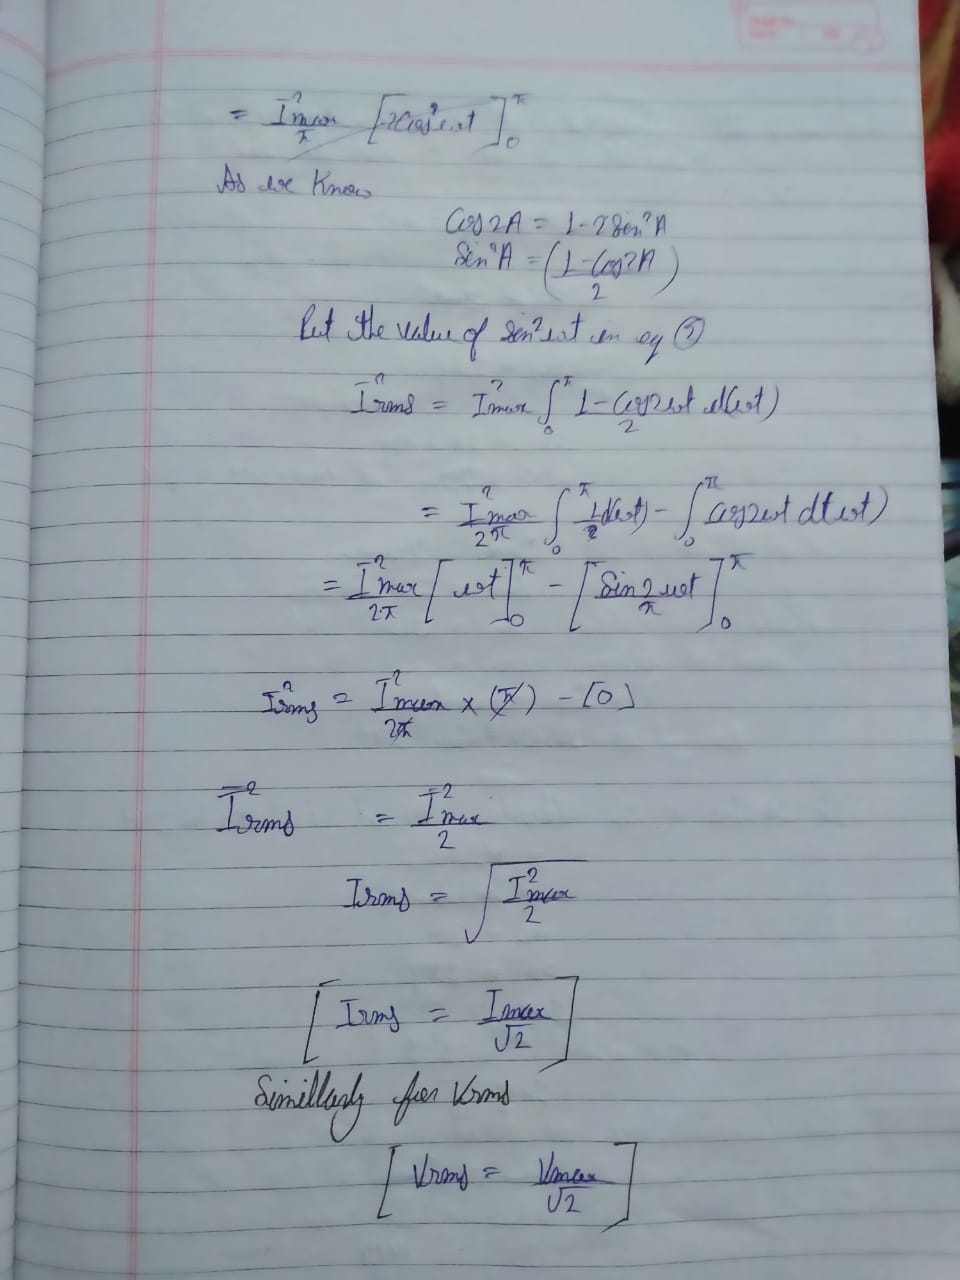 = I²max/π [2cos²ωt]₀^π
As we Know
Cos2A = 1-2Sin²A
Sin²A = (1-Cos2A/2)
Put the value of Sin²ωt in eq ②
I²rms = I²max ∫₀^π 1-Cos2ωt/2 d(ωt)
= I²max/2π ∫₀^π 1/2 d(ωt) - ∫₀^π Cos2ωt d(ωt)
= I²max/2π [ωt]₀^π - [Sin2ωt/π]₀^π
I²rms = I²max/2π × (π) - [0]
I²rms = I²max/2
Irms = √I²max/2
[Irms = Imax/√2]
Simillarly for Vrms
[Vrms = Vmax/√2]